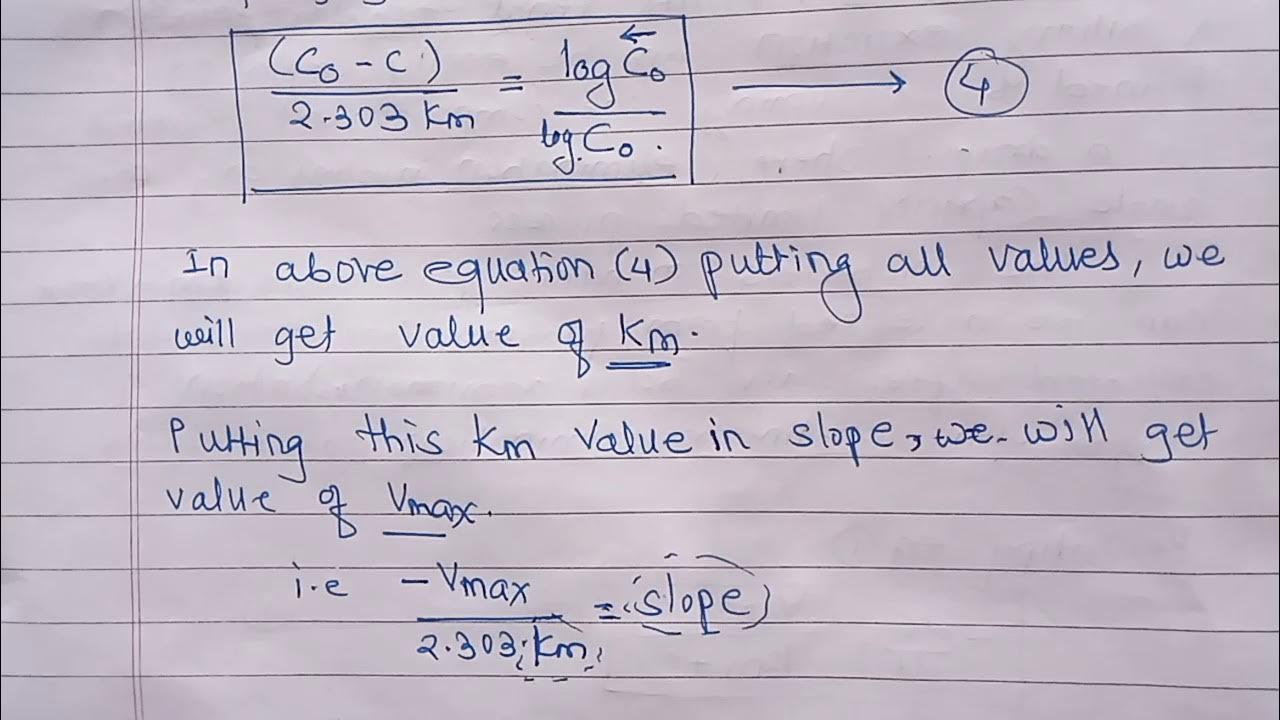 (C₀ - C)
2.303 Km
=
log C̄₀
log C₀.
→ (4)
In above equation (4) putting all values, we
will get value of Km.
Putting this Km value in slope, we will get
value of Vmax.
i.e -Vmax
2.303.Km
= (slope)